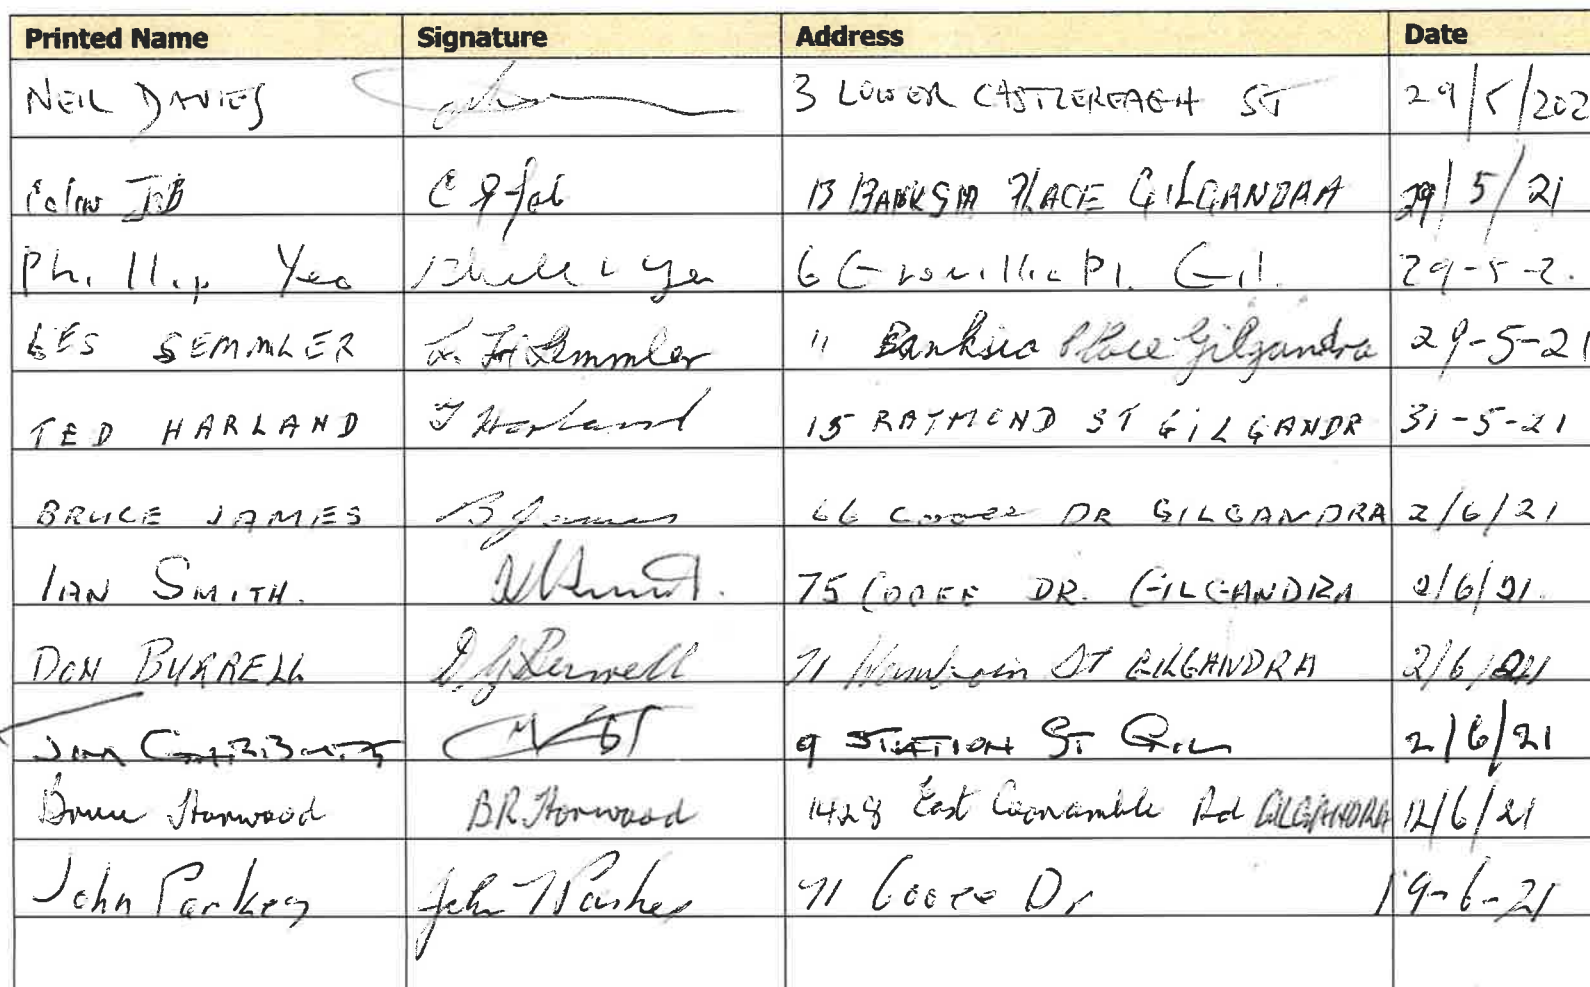 Printed Name Signature Address Date
NEIL DAVIES 3 LOWER CASTLEREAGH ST 29/5/202
Colin JOB C J Job 13 BANKSIA PLACE GILGANDRA 29/5/21
Phillip Yeo 6 Grevillia Pl. Gil. 29-5-2.
LES SEMMLER L. H Semmler 11 Banksia Place Gilgandra 29-5-21
TED HARLAND T Harland 15 RAYMOND ST GILGANDR 31-5-21
BRUCE JAMES B James 66 COOEE DR GILGANDRA 2/6/21
IAN SMITH. 75 COOEE DR. GILGANDRA 2/6/21.
DON BURRELL D.J Burrell 71 ST GILGANDRA 2/6/21
JIM 9 STATION ST GIL 2/6/21
Bruce Horwood BR Horwood 1428 East Coonamble Rd GILGANDRA 12/6/21
John Parkes John Parkes 71 Cooee Dr 19-6-21